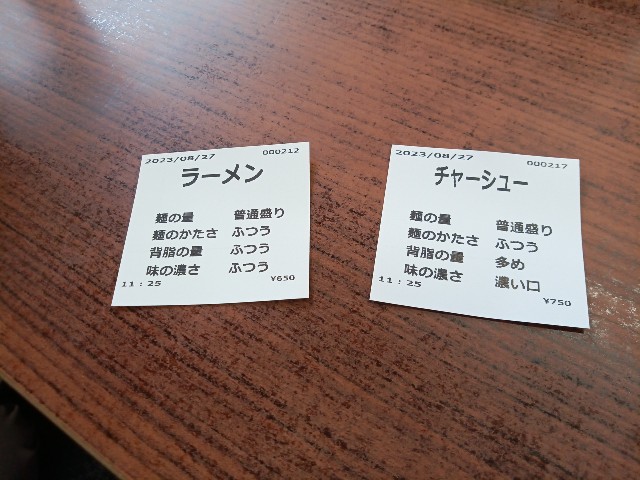 2023/08/27 000212
ラーメン
麺の量 普通盛り
麺のかたさ ふつう
背脂の量 ふつう
味の濃さ ふつう
11:25 ¥650
2023/08/27 000217
チャーシュー
麺の量 普通盛り
麺のかたさ ふつう
背脂の量 多め
味の濃さ 濃い口
11:25 ¥750